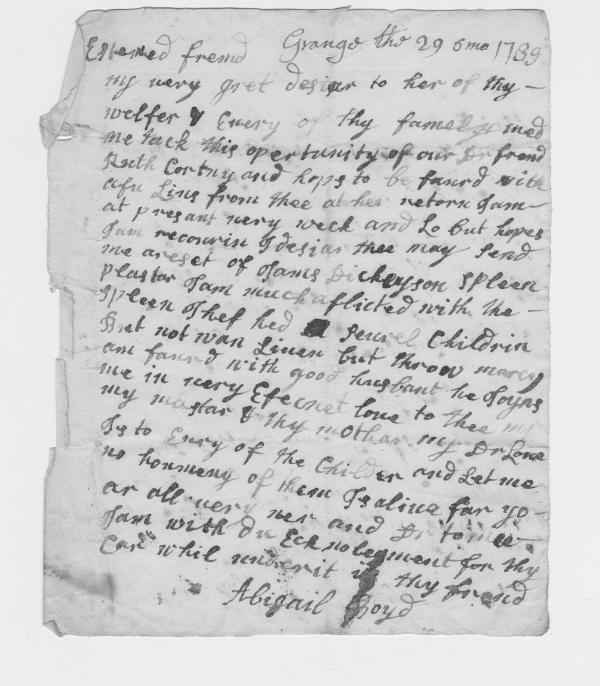 Grange the 29 6mo 1739
Estemed frend
my very gret desiar to her of thy
welfer & Every of thy famely med
me tack this opertunity of our Dr frend
Ruth Cortny and hops to be faurd with
afu Lins from thee at her retorn Jam
at presant very weck and Lo but hops
Jam recourin J desiar thee may send
me areset of Jams Dickeyson spleen
plastar Jam much aflicted with the
spleen J hef hed seurel Childrin
But not wan Liuen but throw marcy
am faurd with good husbant he Joyns
me in very Efecnet loue to thee my
my mastar & thy mothar my Dr Loue
Js to Eury of the Childer and Let me
no houmeny of them Js aliue far yo
ar all very ner and Dr to me
Jam with du Ecknolegment for thy
Car whil under it thy frend
Abigail Boyd